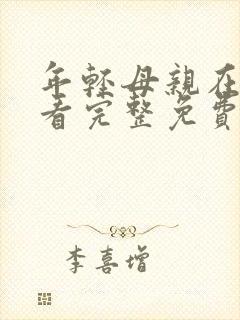 年轻母親在
看完整免費
李喜增